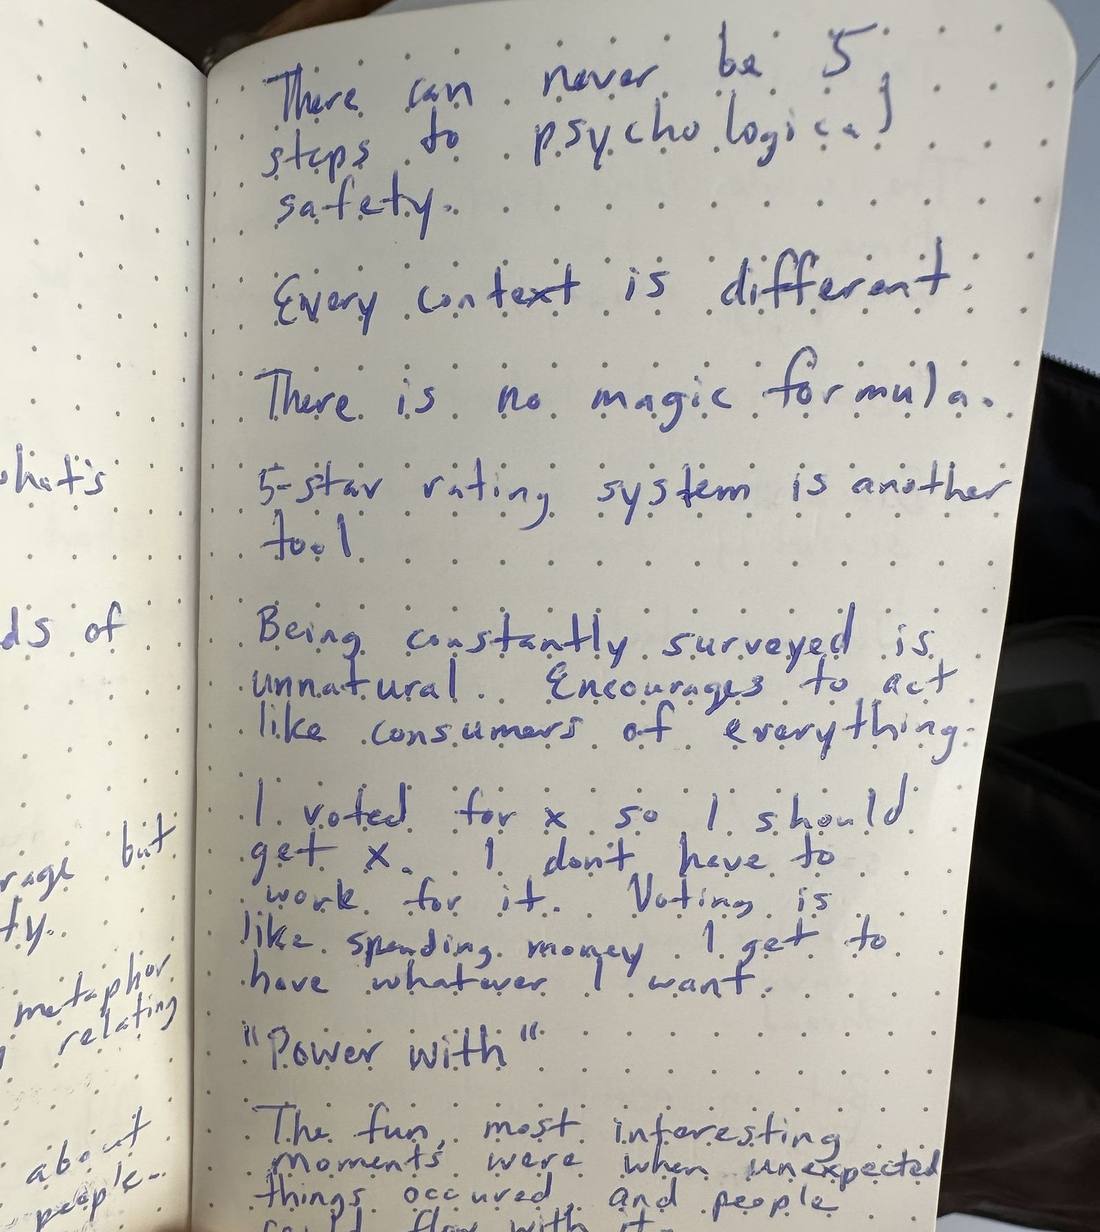 what's
of
but
metaphor
relating
about
people.
There can never be 5
steps to psychological
safety.
Every context is different.
There is no magic formula.
5-star rating system is another
tool
Being constantly surveyed is
unnatural. Encourages to act
like consumers of everything.
I voted for x so I should
get x. I don't have to
work for it. Voting is
like spending money I get to
have whatever I want.
"Power with"
The fun, most interesting
moments were when unexpected
things occured and people
could flow with it.